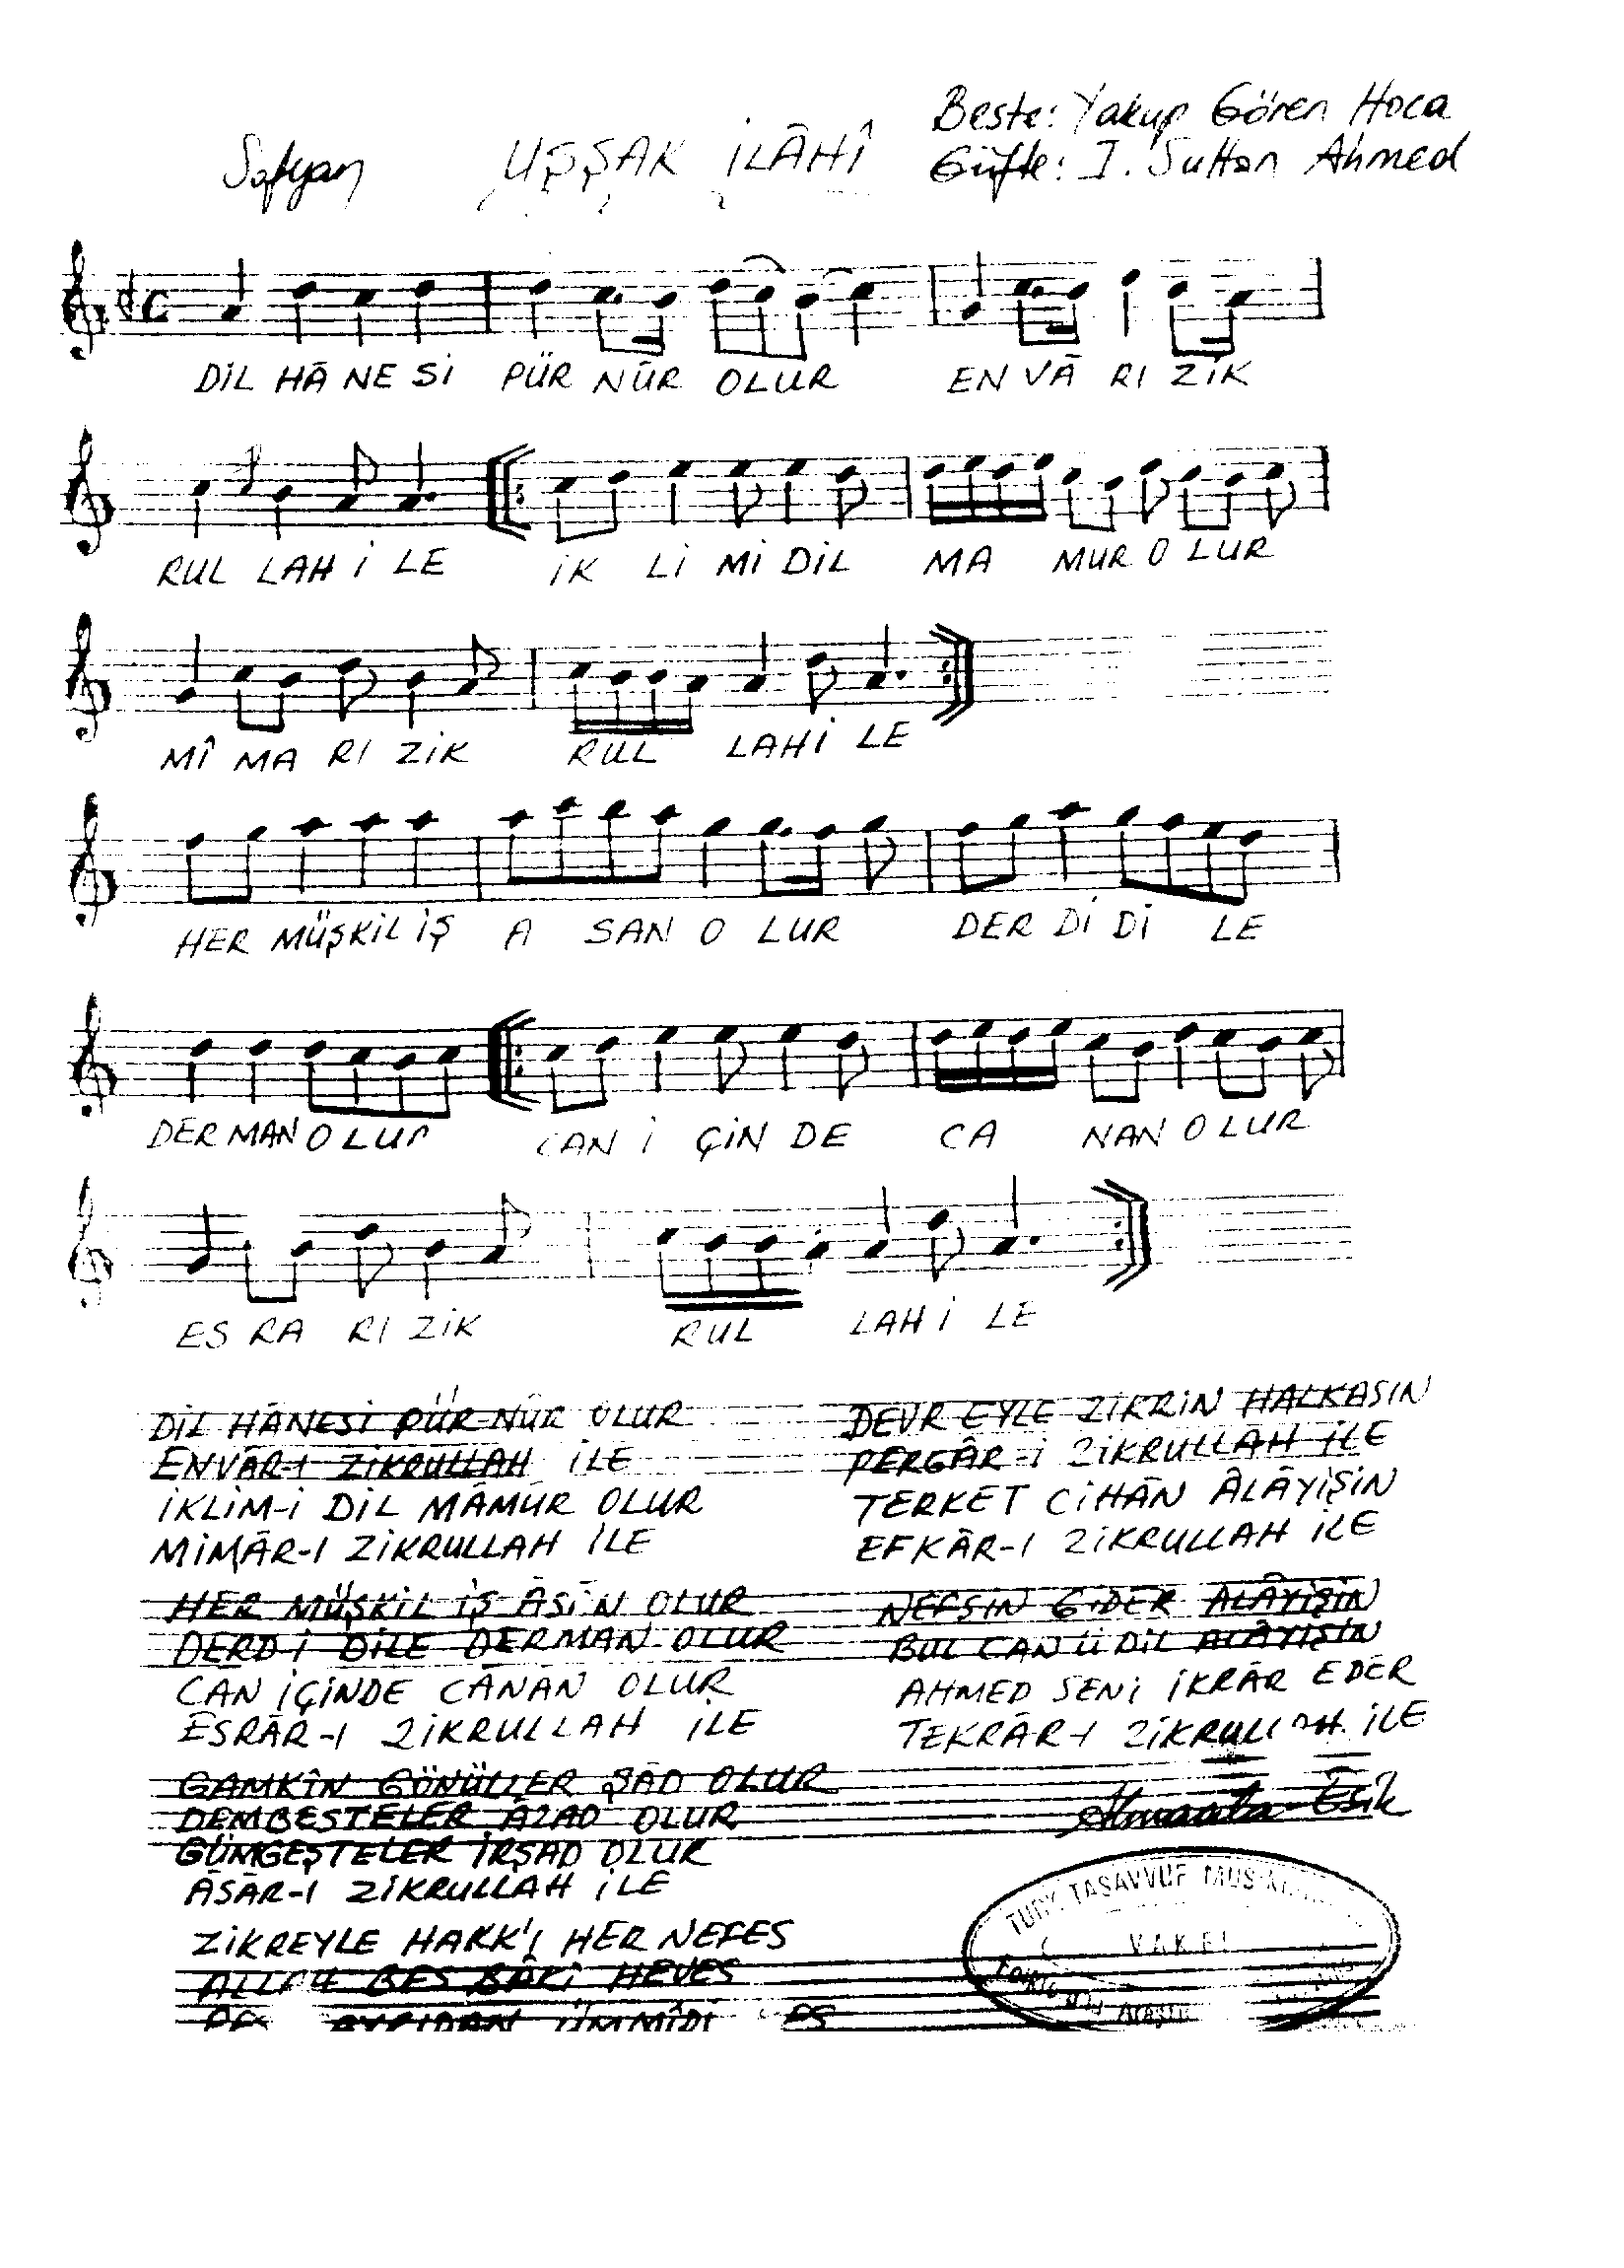 Beste: Yakup Gören Hoca
Sofyan UŞŞAK İLÂHÎ Güfte: I. Sultan Ahmed
DİL HÂ NE Sİ PÜR NÛR OLUR EN VÂ RI ZİK
RUL LAH İ LE İK Lİ Mİ DİL MA MUR O LUR
MÎ MA RI ZİK RUL LAH İ LE
HER MÜŞKİL İŞ A SAN O LUR DER Dİ Dİ LE
DER MAN O LUR CAN İ ÇİN DE CA NAN O LUR
ES RA RI ZİK RUL LAH İ LE
DİL HÂNESİ PÜR NÛR OLUR
ENVÂR-I ZİKRULLAH İLE
İKLİM-İ DİL MÂMÛR OLUR
MİMÂR-I ZİKRULLAH İLE
HER MÜŞKİL İŞ ÂSÂN OLUR
DERD-İ DİLE DERMAN OLUR
CAN İÇİNDE CÂNÂN OLUR
ESRÂR-I ZİKRULLAH İLE
GAMKÎN GÖNÜLLER ŞÂD OLUR
DEMBESTELER ÂZAD OLUR
GÜMGEŞTELER İRŞAD OLUR
ÂSÂR-I ZİKRULLAH İLE
ZİKREYLE HAKK'I HER NEFES
ALLAH BES BÂKİ HEVES
ÜMMÎDİ
DEVR EYLE ZİKRİN HALKASIN
PERGÂR-İ ZİKRULLAH İLE
TERKET CİHÂN ÂLÂYİŞİN
EFKÂR-I ZİKRULLAH İLE
NEFSİN GİDER ALÂYİŞİN
BUL CAN Ü DİL ALÂYİŞİN
AHMED SENİ İKRÂR EDER
TEKRÂR-I ZİKRULLAH İLE
TÜRK TASAVVUF
VAKFI